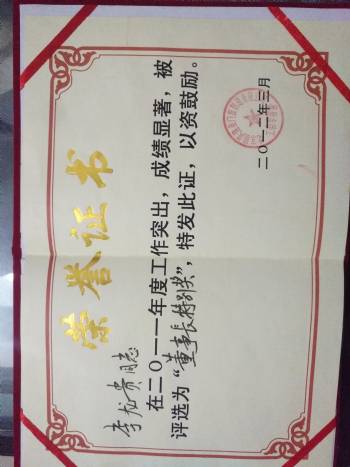 荣誉证书
李松贵同志
在二〇一一年度工作突出，成绩显著，被
评选为“董事长特别奖”，特发此证，以资鼓励。
二〇一二年三月